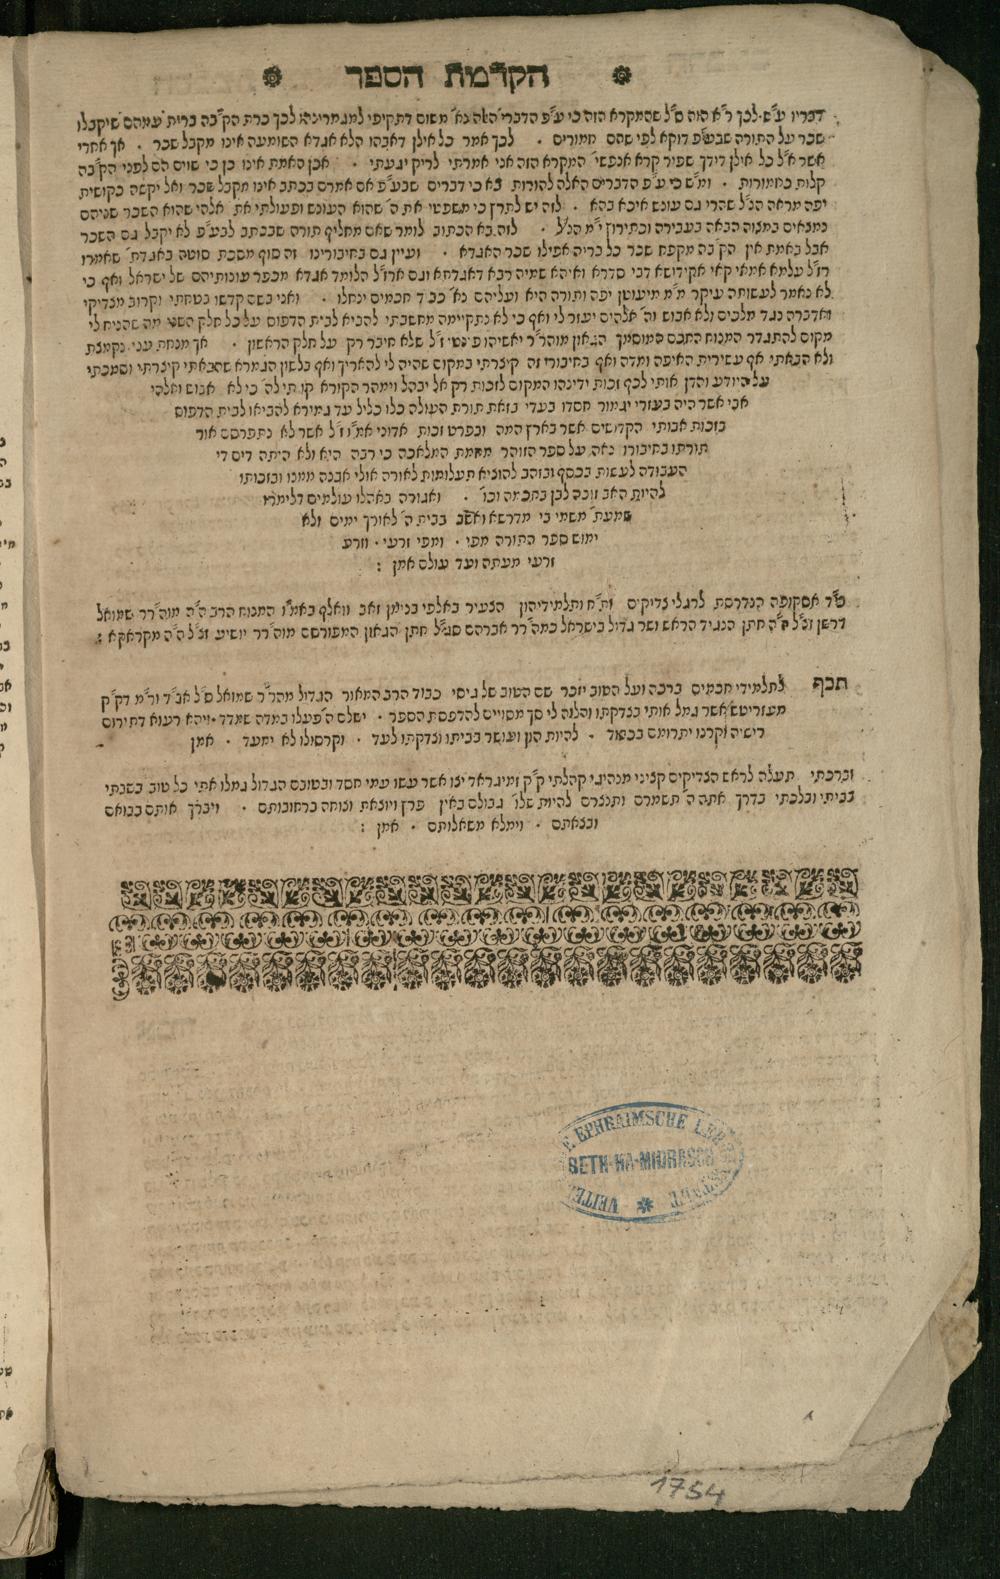 הקדמת הספר
דבריו ע״ש לכך ר״א הוה ס״ל שהמקרא הזה כי ע״פ הדברי׳ האלה נא׳ משום דתקיפי למגמרינהו לכך כרת הק״בה ברית עמהם שיקבלו
שכר על התורה שבע״פ דוקא לפי שהם חמורים · לכך אמר כל אילן דאבהו הלא אגדא השומעה אינו מקבל שכר · אך אחרי
אשר א״ל כל אילן דידך שפיר קרא אנפשי׳ המקרא הזה אני אמרתי לריק יגעתי · אכן האמת אינו כן כי שוים הם לפני הק״בה
קלות כחמורות · ומ״ש כי ע״פ הדברים האלה להורות בא כי דברים שבע״פ אם אמרם בכתב אינו מקבל שכר ואל יקשה בקושית
יפה מראה הנ״ל שהרי גם עונש איכא בהא · לזה יש לתרץ כי משפטי את ה׳ שהוא העונש ופעולתי את אלהי שהוא השכר שניהם
נמצאים במצוה הבאה בעבירה וכתירוץ י״מ הנ״ל · לזה בא הכתוב לומר שאם מחליף תורה שבכתב לבע״פ לא יקבל גם השכר
אבל באמת אין הק״בה מקפח שכר כל בריה אפילו שכר האגדא · ועיין גם בחיבורינו זה סוף מסכת סוטה באגדת׳ שאמרו
רז״ל עלמא אמאי קאי אקידושא דבי סדרא ואיהא שמיה רבא דאגדתא וגם ארז״ל הלומד אגדא מכפר עונותיהם של ישראל ואף כי
לא נאמר לעשותה עיקר מ״מ מיעוטן יפה ותורה היא ועליהם נא׳ כבוד חכמים ינחלו · ואני בשם קדשו בטחתי וקרוב מצדיקי
ואדברה נגד מלכים ולא אבוש וה׳ אלהים יעזר לי ואף כי לא נתקיימה מחשבתי להביא לבית הדפוס על כל חלק השני מה שהניח לי
מקום להתגדר המנוח החכם המוסמך הגאון מוהר״ר יאשיהו פינטי ז״ל שלא חיבר רק על חלק הראשון · אך מנחת עני נקמצת
ולא הבאתי אף עשירית האיפה ומדה ואף בחיבורי זה קיצרתי במקום שהיה לי להאריך ואף בלשון הגמרא שהבאתי קיצרתי וסמכתי
על היודע והדן אותי לכף זכות ידינהו המקום לזכות רק אל יבהל וימהר הקורא קותי לה׳ כי לא אבוש ואלהי
אבי אשר היה בעזרי יגמור חסדו בעדי בזאת תורת העולה כלו כליל עד גמירא להביאו לבית הדפוס
בזכות אבותי הקדושים אשר בארץ המה ובפרט זכות אדוני אמ״ו ז״ל אשר לא נתפרסם אור
תורתו בחיבורו נאה על ספר הזוהר מחמת המלאכה כי רבה היא ולא היתה דים די
העבודה לעשות בכסף ובזהב להוציא תעלומות לאורה אולי אבנה ממנו ובזכותו
להיות האב זוכה לבן בחכמה וכו׳ · ואגורה באהלו עולמים דלימרו
שמעת׳ משמי בי מדרשא ואשב בבית ה׳ לאורך ימים ולא
ימוש ספר התורה מפי · ומפי זרעי · וזרע
זרעי מעתה ועד עולם אמן :
כ״ד אסקופה הנדרסת לרגלי צדיקים ות״ח ותלמידיהון הצעיר באלפי בנימן זאב וואלף באמ״ו המנוח הרב ה״ה מוהר״ר שמואל
דרשן זצ״ל ה״ה חתן הנגיד הראש ושר גדול בישראל כמה״רר אברהם סג״ל חתן הגאון המפורסם מוה״רר יושיע זצ״ל ה״ה מקראקא :
תכף לתלמידי חכמים ברכה ועל הטוב יזכר שם הטוב של גיסי כבוד הרב המאור הגדול מהר״ר שמואל ס״ל אב״ד ור״מ דק״ק
מעזריטש אשר גמל אותי בצדקתו והלוה לי סך מסויים להדפסת הספר · ישלם ה׳ פעלו במדה שמדד · ויהא רעוא דתירום
רישיה וקרנו יתרומם בכבוד · להיות הון ועושר בביתו וצדקתו לעד · וקרסולו לא ימעד · אמן
וברכתי תעלה לראש הצדיקים קציני מנהיגי קהלתי ק״ק זמיגראד יצו אשר עשו עמי חסד ובטובם הגדול גמלו אתי כל טוב בשבתי
בביתי ובלכתי בדרך אתה ה׳ תשמרם ותנצרם להיות שלו׳ גבולם באין פרץ ויוצאת וצוחה ברחובותם · ויברך אותם בבואם
ובצאתם · וימלא משאלותם · אמן :
VEITEL EPHRAIMSCHE
BETH-HA-MIDRASCH
1754